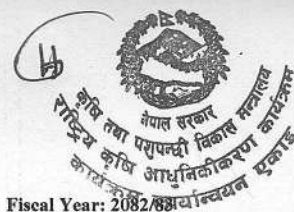 नेपाल सरकार
कृषि तथा पशुपन्छी विकास मन्त्रालय
राष्ट्रिय कृषि आधुनिकीकरण कार्यक्रम
कार्यक्रम कार्यान्वयन एकाई
Fiscal Year: 2082/83